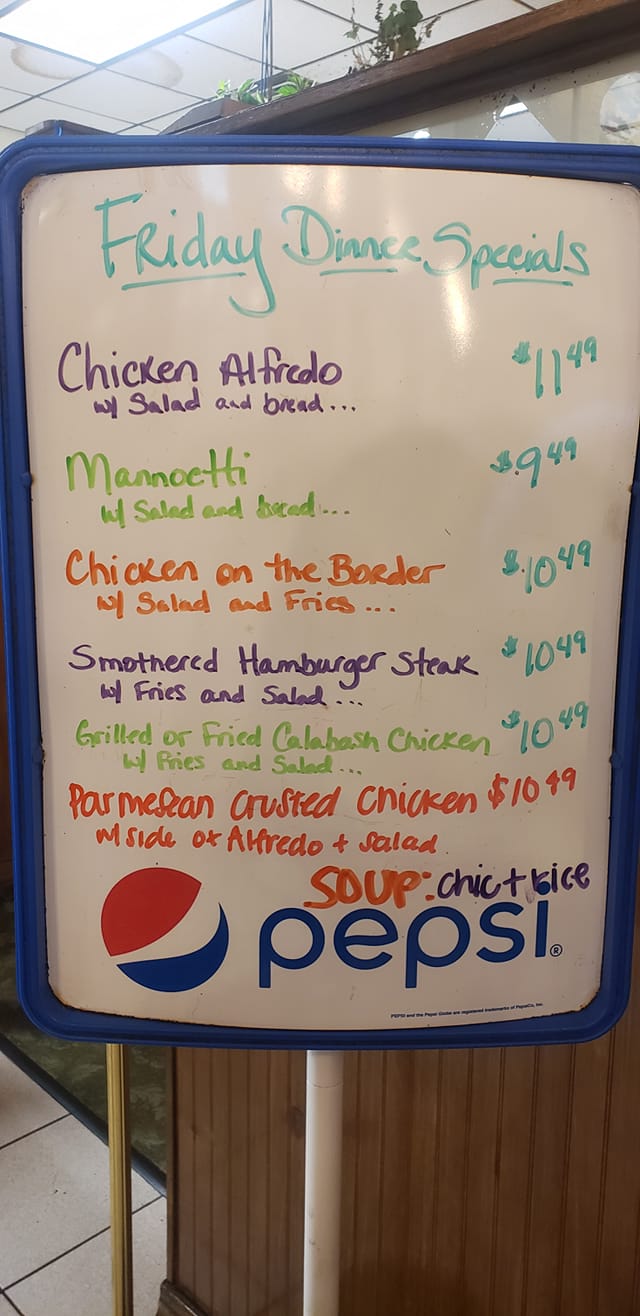 Friday Dinner Specials
Chicken Alfredo $11.49
w/ Salad and bread...
Mannoetti $9.49
w/ Salad and bread...
Chicken on the Border $10.49
w/ Salad and Fries...
Smothered Hamburger Steak $10.49
w/ Fries and Salad...
Grilled or Fried Calabash Chicken $10.49
w/ Fries and Salad...
Parmesean Crusted Chicken $10.49
w/ side of Alfredo + Salad
SOUP: chic + rice
pepsi®
PEPSI and the Pepsi Globe are registered trademarks of PepsiCo, Inc.